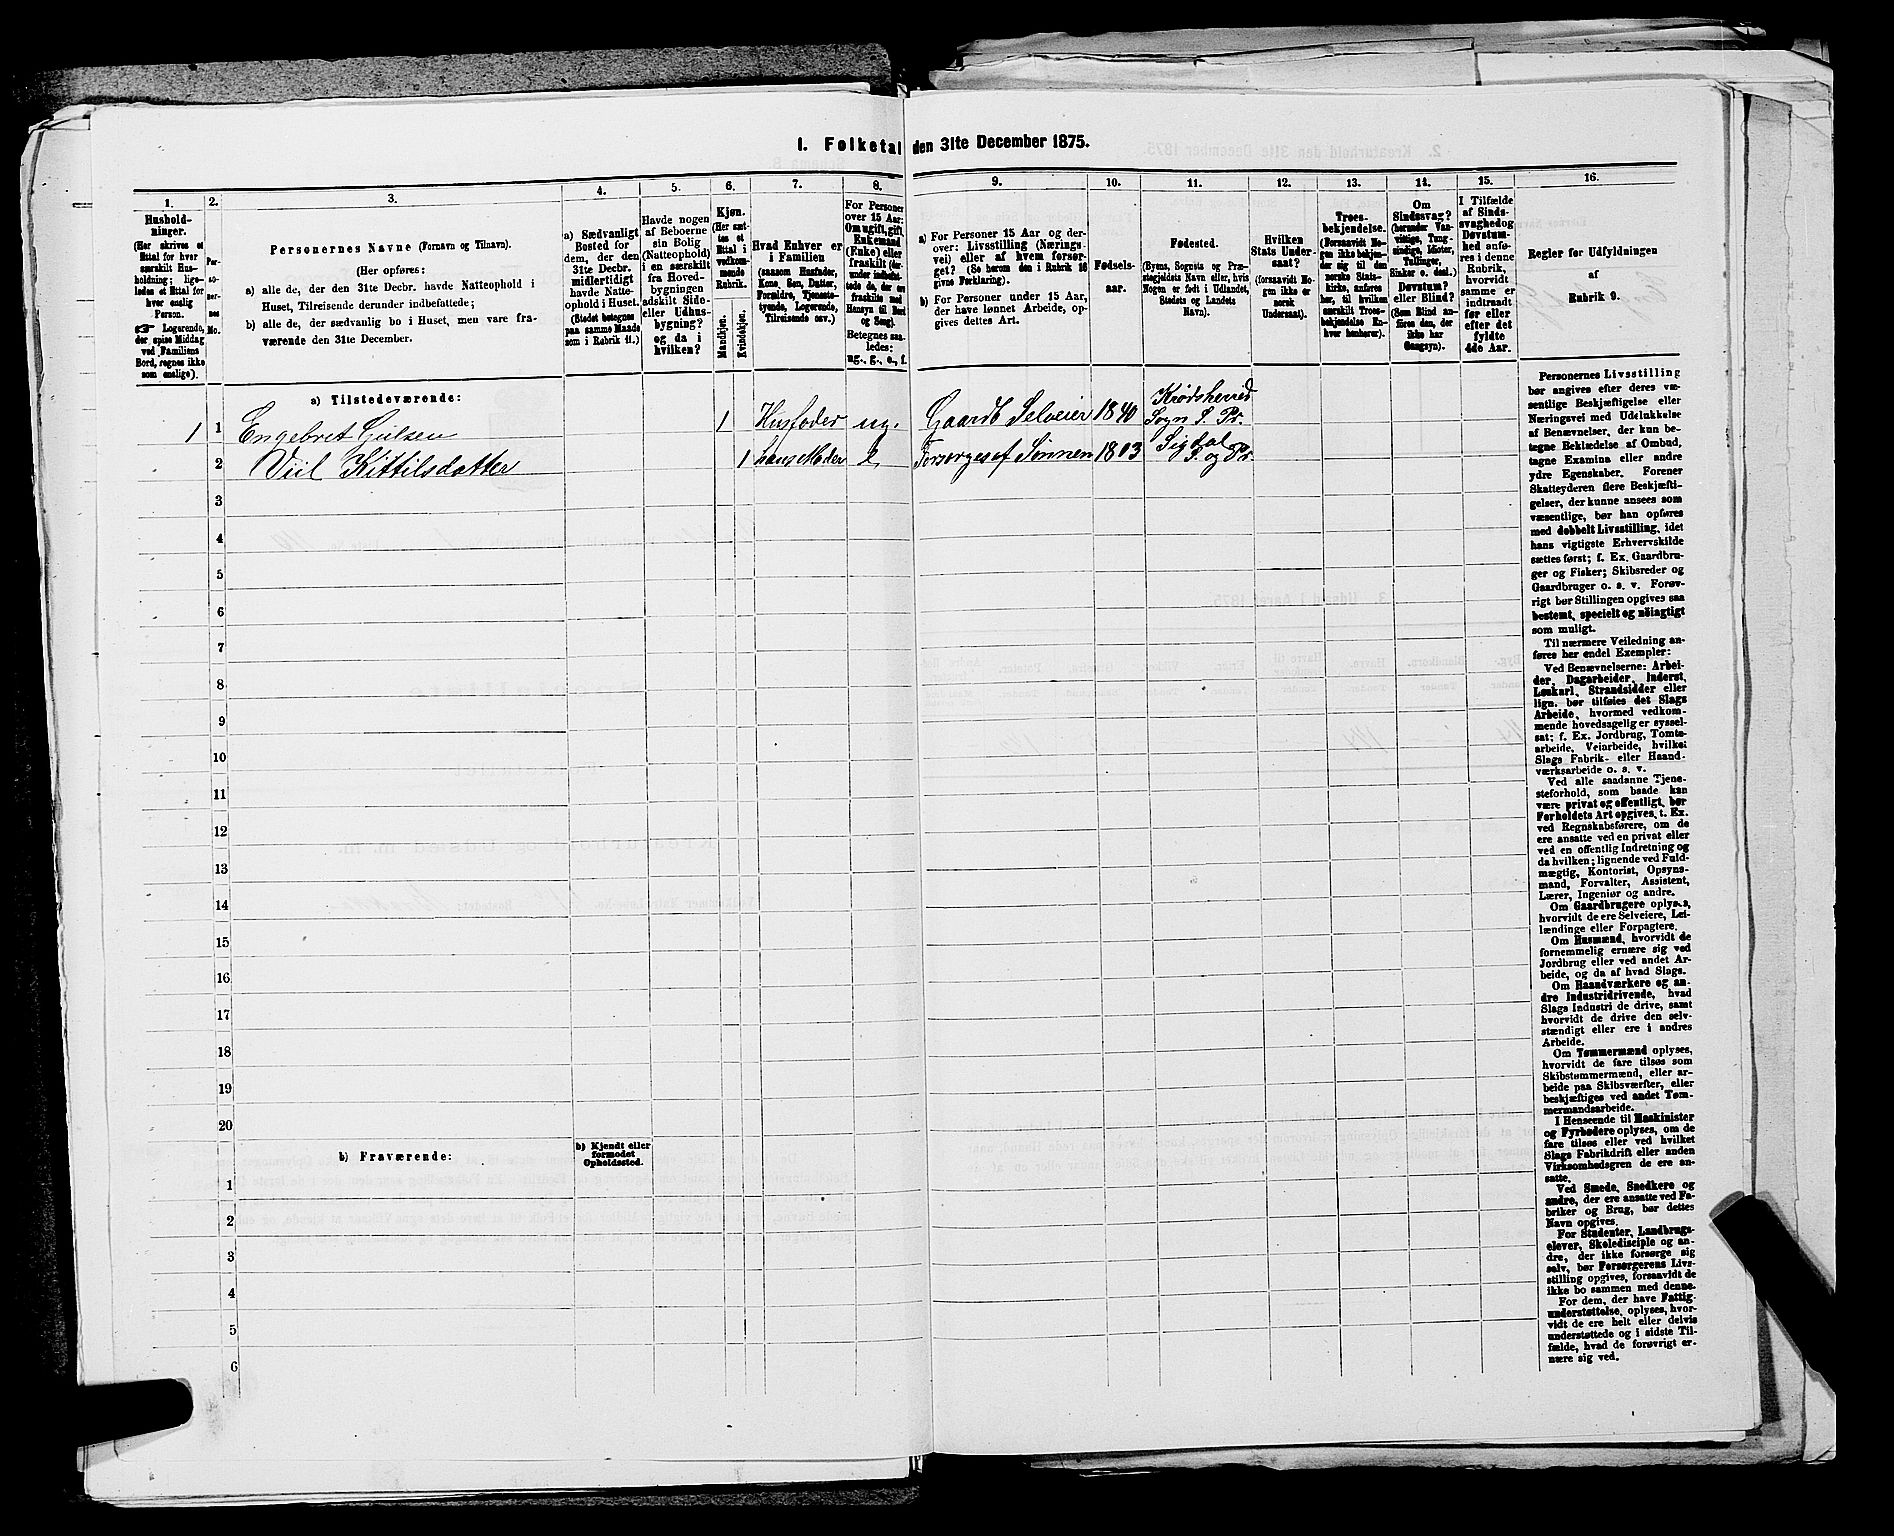 1. Folketal den 31te December 1875.
1. 2. 3. 4. 5. 6. 7. 8. 9. 10. 11. 12. 13. 14. 15. 16.
Hushold-
ninger.
(Her skrives et
Ettal for hver
særskilt Hus-
holdning; lige-
ledes et Ettal for
hver enslig
Person.
☞ Logerende,
der spise Middag
ved Familiens
Bord, regnes ikke
som enslige).
Per-
so-
ner-
nes
No.
Personernes Navne (Fornavn og Tilnavn).
(Her opføres:
a) alle de, der den 31te Decbr. havde Natteophold i
Huset, Tilreisende derunder indbefattede;
b) alle de, der sædvanlig bo i Huset, men vare fra-
værende den 31te December.
a) Sædvanligt
Bosted for
dem, der den
31te Decbr.
midlertidigt
havde Natte-
ophold i Huset.
(Stedet betegnes
paa samme Maade
som i Rubrik 11.)
Havde nogen
af Beboerne
sin Bolig
(Natteophold)
i en særskilt
fra Hoved-
bygningen
adskilt Side-
eller Udhus-
bygning?
og da i
hvilken?
Kjøn.
(Her sæt-
tes et
Ettal i
vedkom-
mende
Rubrik.
Mandkjøn.
Kvindekjøn.
Hvad Enhver er
i Familien
(saasom Husfader,
Kone, Søn, Datter,
Forældre, Tjeneste-
tyende, Logerende,
Tilreisende osv.)
For Personer
over 15 Aar:
Om ugift, gift,
Enkemand
(Enke) eller
fraskilt (der-
under indbefat-
tede de, der ere
fraskilte med
Hensyn til Bord
og Seng).
Betegnes saa-
ledes:
ug., g., e., f.
a) For Personer 15 Aar og der-
over: Livsstilling (Nærings-
vei) eller af hvem forsør-
get? (Se herom den i Rubrik 16
givne Forklaring).
b) For Personer under 15 Aar,
der have lønnet Arbeide, op-
gives dettes Art.
Fødsels-
aar.
Fødested.
(Byens, Sognets og Præ-
stegjeldets Navn eller, hvis
Nogen er født i Udlandet,
Stedets og Landets
Navn).
Hvilken
Stats Under-
saat?
(forsaavidt No-
gen ikke er
norsk
Undersaat).
Troes-
bekjendelse.
(Forsaavidt No-
gen ikke bekjen-
der sig til den
norske Stats-
kirke, anføres
her, til hvilken
særskilt Troes-
bekjendelse En-
hver henhører).
Om
Sindssvag?
(herunder Van-
vittige, Tung-
sindige, Idioter,
Tullinger,
Sinker o. desl.)
Døvstum?
eller Blind?
(Som Blind an-
føres den, der
ikke har
Gangsyn).
I Tilfælde
af Sinds-
svaghed og
Døvstum-
hed anfø-
res i denne
Rubrik,
hvorvidt
samme er
indtraadt
før eller
efter det
fyldte
4de Aar.
Regler for Udfyldningen
af
Rubrik 9.
a) Tilstedeværende:
1 1 Engebret Gulsen 1 Husfader ug. Gaardb. Selveier 1840 Krødsherred Sogn S. Pr.
2 Viil Kittilsdatter 1 hans Moder e Forsørges af Sønnen 1803 Sigdal S. og Pr.
3
4
5
6
7
8
9
10
11
12
13
14
15
16
17
18
19
20
b) Fraværende:
b) Kjendt eller
formodet
Opholdssted.
1
2
3
4
5
6
Personernes Livsstilling
bør angives efter deres væ-
sentlige Beskjæftigelse eller
Næringsvei med Udelukkelse
af Benævnelser, der kun be-
tegne Beklædelse af Ombud,
tagne Examina eller andre
ydre Egenskaber. Forener
Skatteyderen flere Beskjæfti-
gelser, der kunne ansees som
væsentlige, bør han opføres
med dobbelt Livsstilling, idet
hans vigtigste Erhvervskilde
sættes først; f. Ex. Gaardbru-
ger og Fisker; Skibsreder og
Gaardbruger o. s. v. Forøv-
rigt bør Stillingen opgives saa
bestemt, specielt og nöiagtigt
som muligt.
Til nærmere Veiledning an-
føres her endel Exempler:
Ved Benævnelserne: Arbei-
der, Dagarbeider, Inderst,
Løskarl, Strandsidder eller
lign. bør tilføies det Slags
Arbeide, hvormed vedkom-
mende hovedsagelig er syssel-
sat; f. Ex. Jordbrug, Tomte-
arbeide, Veiarbeide, hvilket
Slags Fabrik- eller Haand-
værksarbeide o. s. v.
Ved alle saadanne Tjene-
steforhold, som baade kan
være privat og offentligt, bør
Forholdets Art opgives, t. Ex.
ved Regnskabsførere, om de
ere ansatte ved en privat eller
ved en offentlig Indretning og
da hvilken; lignende ved Fuld-
mægtig, Kontorist, Opsyns-
mand, Forvalter, Assistent,
Lærer, Ingeniør og andre.
Om Gaardbrugere oplyses,
hvorvidt de ere Selveiere, Lei-
lændinge eller Forpagtere.
Om Husmænd, hvorvidt de
fornemmelig ernære sig ved
Jordbrug eller ved andet Ar-
beide, og da af hvad Slags.
Om Haandværkere og an-
dre Industridrivende, hvad
Slags Industri de drive, samt
hvorvidt de drive den selv-
stændigt eller ere i andres
Arbeide.
Om Tømmermænd oplyses,
hvorvidt de fare tilsøs som
Skibstømmermænd, eller ar-
beide paa Skibsværfter, eller
beskjæftiges ved andet Tøm-
mermandsarbeide.
I Henseende til Maskinister
og Fyrbødere oplyses, om de
fare tilsøs eller ved hvilket
Slags Fabrikdrift eller anden
Virksomhedsgren de ere an-
satte.
Ved Smede, Snedkere og
andre, der ere ansatte ved Fa-
briker og Brug, bør dettes
Navn opgives.
For Studenter, Landbrugs-
elever, Skoledisciple og an-
dre, der ikke forsørge sig
selv, bør Forsørgerens Livs-
stilling opgives, forsaavidt de
ikke bo sammen med denne.
For dem, der have Fattig-
understøttelse, oplyses, hvor-
vidt de ere helt eller delvis
understøttede og i sidste Til-
fælde, hvad de forøvrigt er-
nære sig ved.